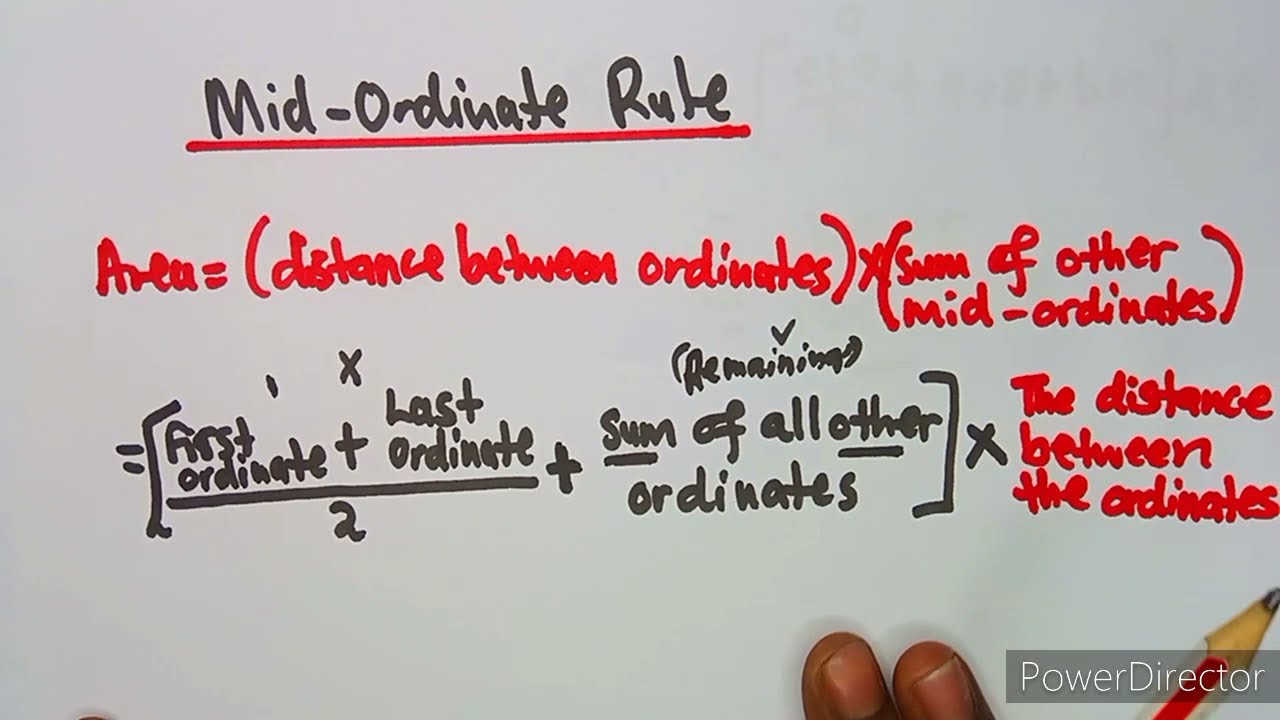 Mid-Ordinate Rule
Area = (distance between ordinates) × (sum of other mid-ordinates)
= [First ordinate + Last ordinate / 2 + sum of all other (Remaining) ordinates] × The distance between the ordinates
PowerDirector